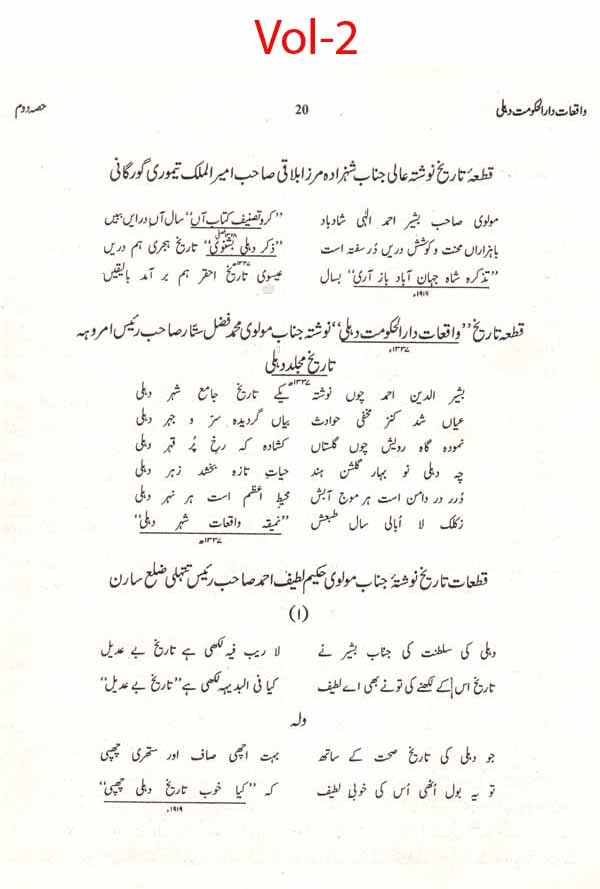 Vol-2
واقعات دارالحکومت دہلی 20 حصہ دوم
قطعۂ تاریخ نوشتہ عالی جناب شہزادہ مرزا بلاقی صاحب امیر الملک تیموری گورگانی
مولوی صاحب بشیر احمد الٰہی شاد باد "کرو تصنیف کتاب آں" سال آں در ایں ببیں
باہزاراں محنت و کوشش دریں دُر سفتہ است "ذکر دہلی بشنوی" تاریخ ہجری ہم دریں
"تذکرہ شاہ جہان آباد باز آری" بسال عیسوی تاریخ احقر ہم بر آمد بالیقیں
۱۹۱۹ء ۱۳۳۷ھ
قطعہ تاریخ "واقعات دارالحکومت دہلی" نوشتہ جناب مولوی محمد فضل ستّار صاحب رئیس امروہہ
۱۳۳۷ھ
تاریخ مجلد دہلی
۱۳۳۷ھ
بشیر الدین احمد چوں نوشتہ یکے تاریخ جامع شہر دہلی
عیاں شد کنز مخفی حوادث بیاں گردیدہ سرّ و جہر دہلی
نمودہ گاہ رویش چوں گلستاں کشادہ کہ رخِ پُر قہر دہلی
چہ دہلی نو بہار گلشن ہند حیاتِ تازہ بخشد زہر دہلی
دُرر در دامن است ہر موج آبش محیطِ اعظم است ہر نہر دہلی
زکلک لا اُبالی سال طبعش "نمیقہ واقعات شہر دہلی"
۱۳۳۷ھ
قطعات تاریخ نوشتۂ جناب مولوی حکیم لطیف احمد صاحب رئیس تتہلی ضلع سارن
(۱)
دہلی کی سلطنت کی جناب بشیر نے لا ریب فیہ لکھی ہے تاریخ بے عدیل
تاریخ اس کے لکھنے کی تونے بھی اے لطیف کیا فی البدیہہ لکھی ہے "تاریخ بے عدیل"
ولہ
جو دہلی کی تاریخ صحت کے ساتھ بہت اچھی صاف اور ستھری چھپی
تو یہ بول اُٹھی اُس کی خوبی لطیف کہ "کیا خوب تاریخ دہلی چھپی"
۱۹۱۹ء